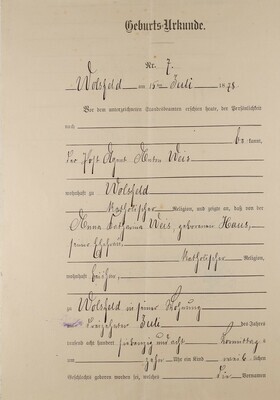 Geburts-Urkunde.
Nr. 7.
Wolsfeld am 15ten Juli 1878.
Vor dem unterzeichneten Standesbeamten erschien heute, der Persönlichkeit
nach
be kannt,
Anton Weis
wohnhaft zu Wolsfeld
katholischer Religion, und zeigte an, daß von der
Anna Katharina Weis geborenen Haus,
seiner Ehefrau,
katholischer Religion,
wohnhaft bei ihm,
zu Wolsfeld in seiner Wohnung
Juli des Jahres
tausend acht hundert siebenzig und acht Vormittags
um zehn Uhr ein Kind weib lichen
Geschlechts geboren worden sei, welches Vornamen